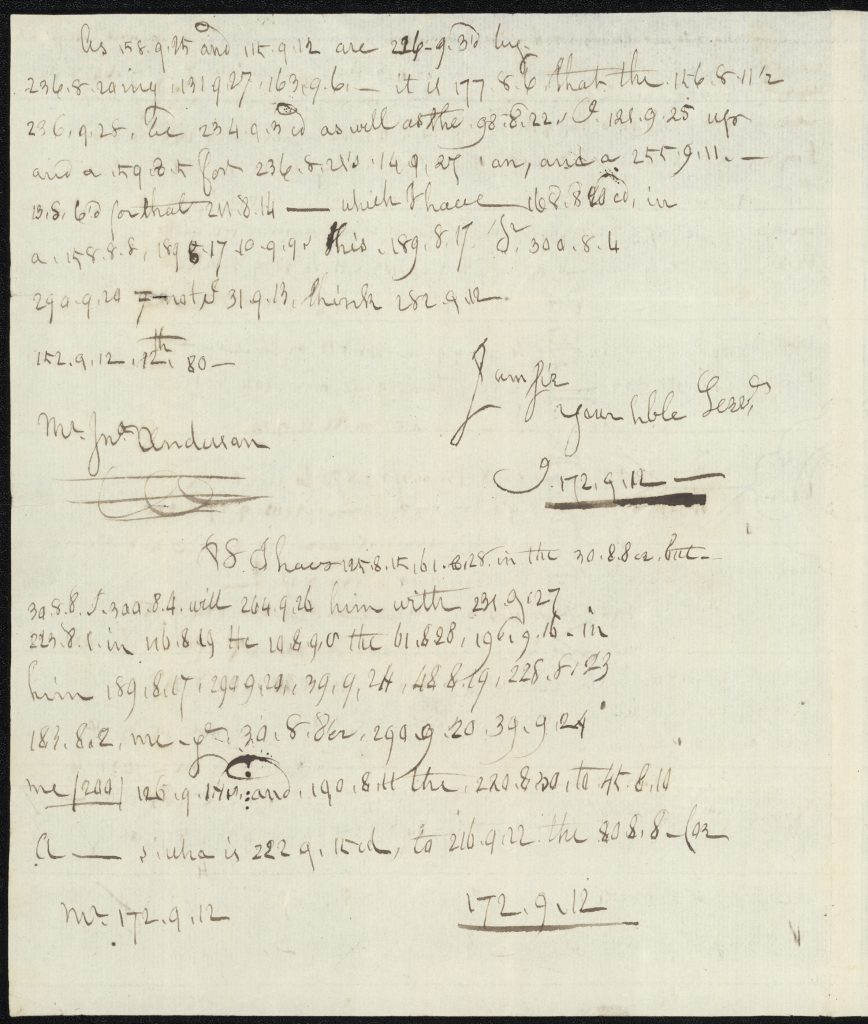 As 158.9.25 and 115.9.12 are 226.9.3'd by-
236.8.20ing 131.9.27, 163.9.6. — it is 177.8.6 that the 156.8.11 12
236.9.28, be 234.9.3'd as well as the 98.8.22. I. 121.9.25 up
and a 159.8.5 for 236.8.21's .14.9.27 an, and a 255.9.11. —
13.8.6'd for that 211.8.14 — which I have 168.8.20'd, in
a .158.8.8, 189.8.17 10.9.9. This .189.8.17 Sr. 300.8.4
290.9.20 not I 31.9.13, think 282.9.12.
152.9.12. 12th. 80 —
I am Sir
your hble Servt
Mr. Jno. Anderson
I. 172.9.12 —
PS. I have 125.8.15, 61.8.28. in the 30.8.8 but —
30.8.8. I. 300.8.4. will 264.9.26 him with 231.9.27
223.8.1. in 116.8.19 He the 61.8.28, 196.9.16 - in
him 189.8.17, 290.9.20, 39.9.24, 48.8.19, 228.8.23
183.8.2, me - 30.8.8 or, 290.9.20. 39.9.24
me (200) 126.9. and, 190.8.11 the, 220.8.30, to 45.8.10
A — who is 222.9.15'd, to 216.9.22 the 30.8.8 -
Mr. 172.9.12
172.9.12